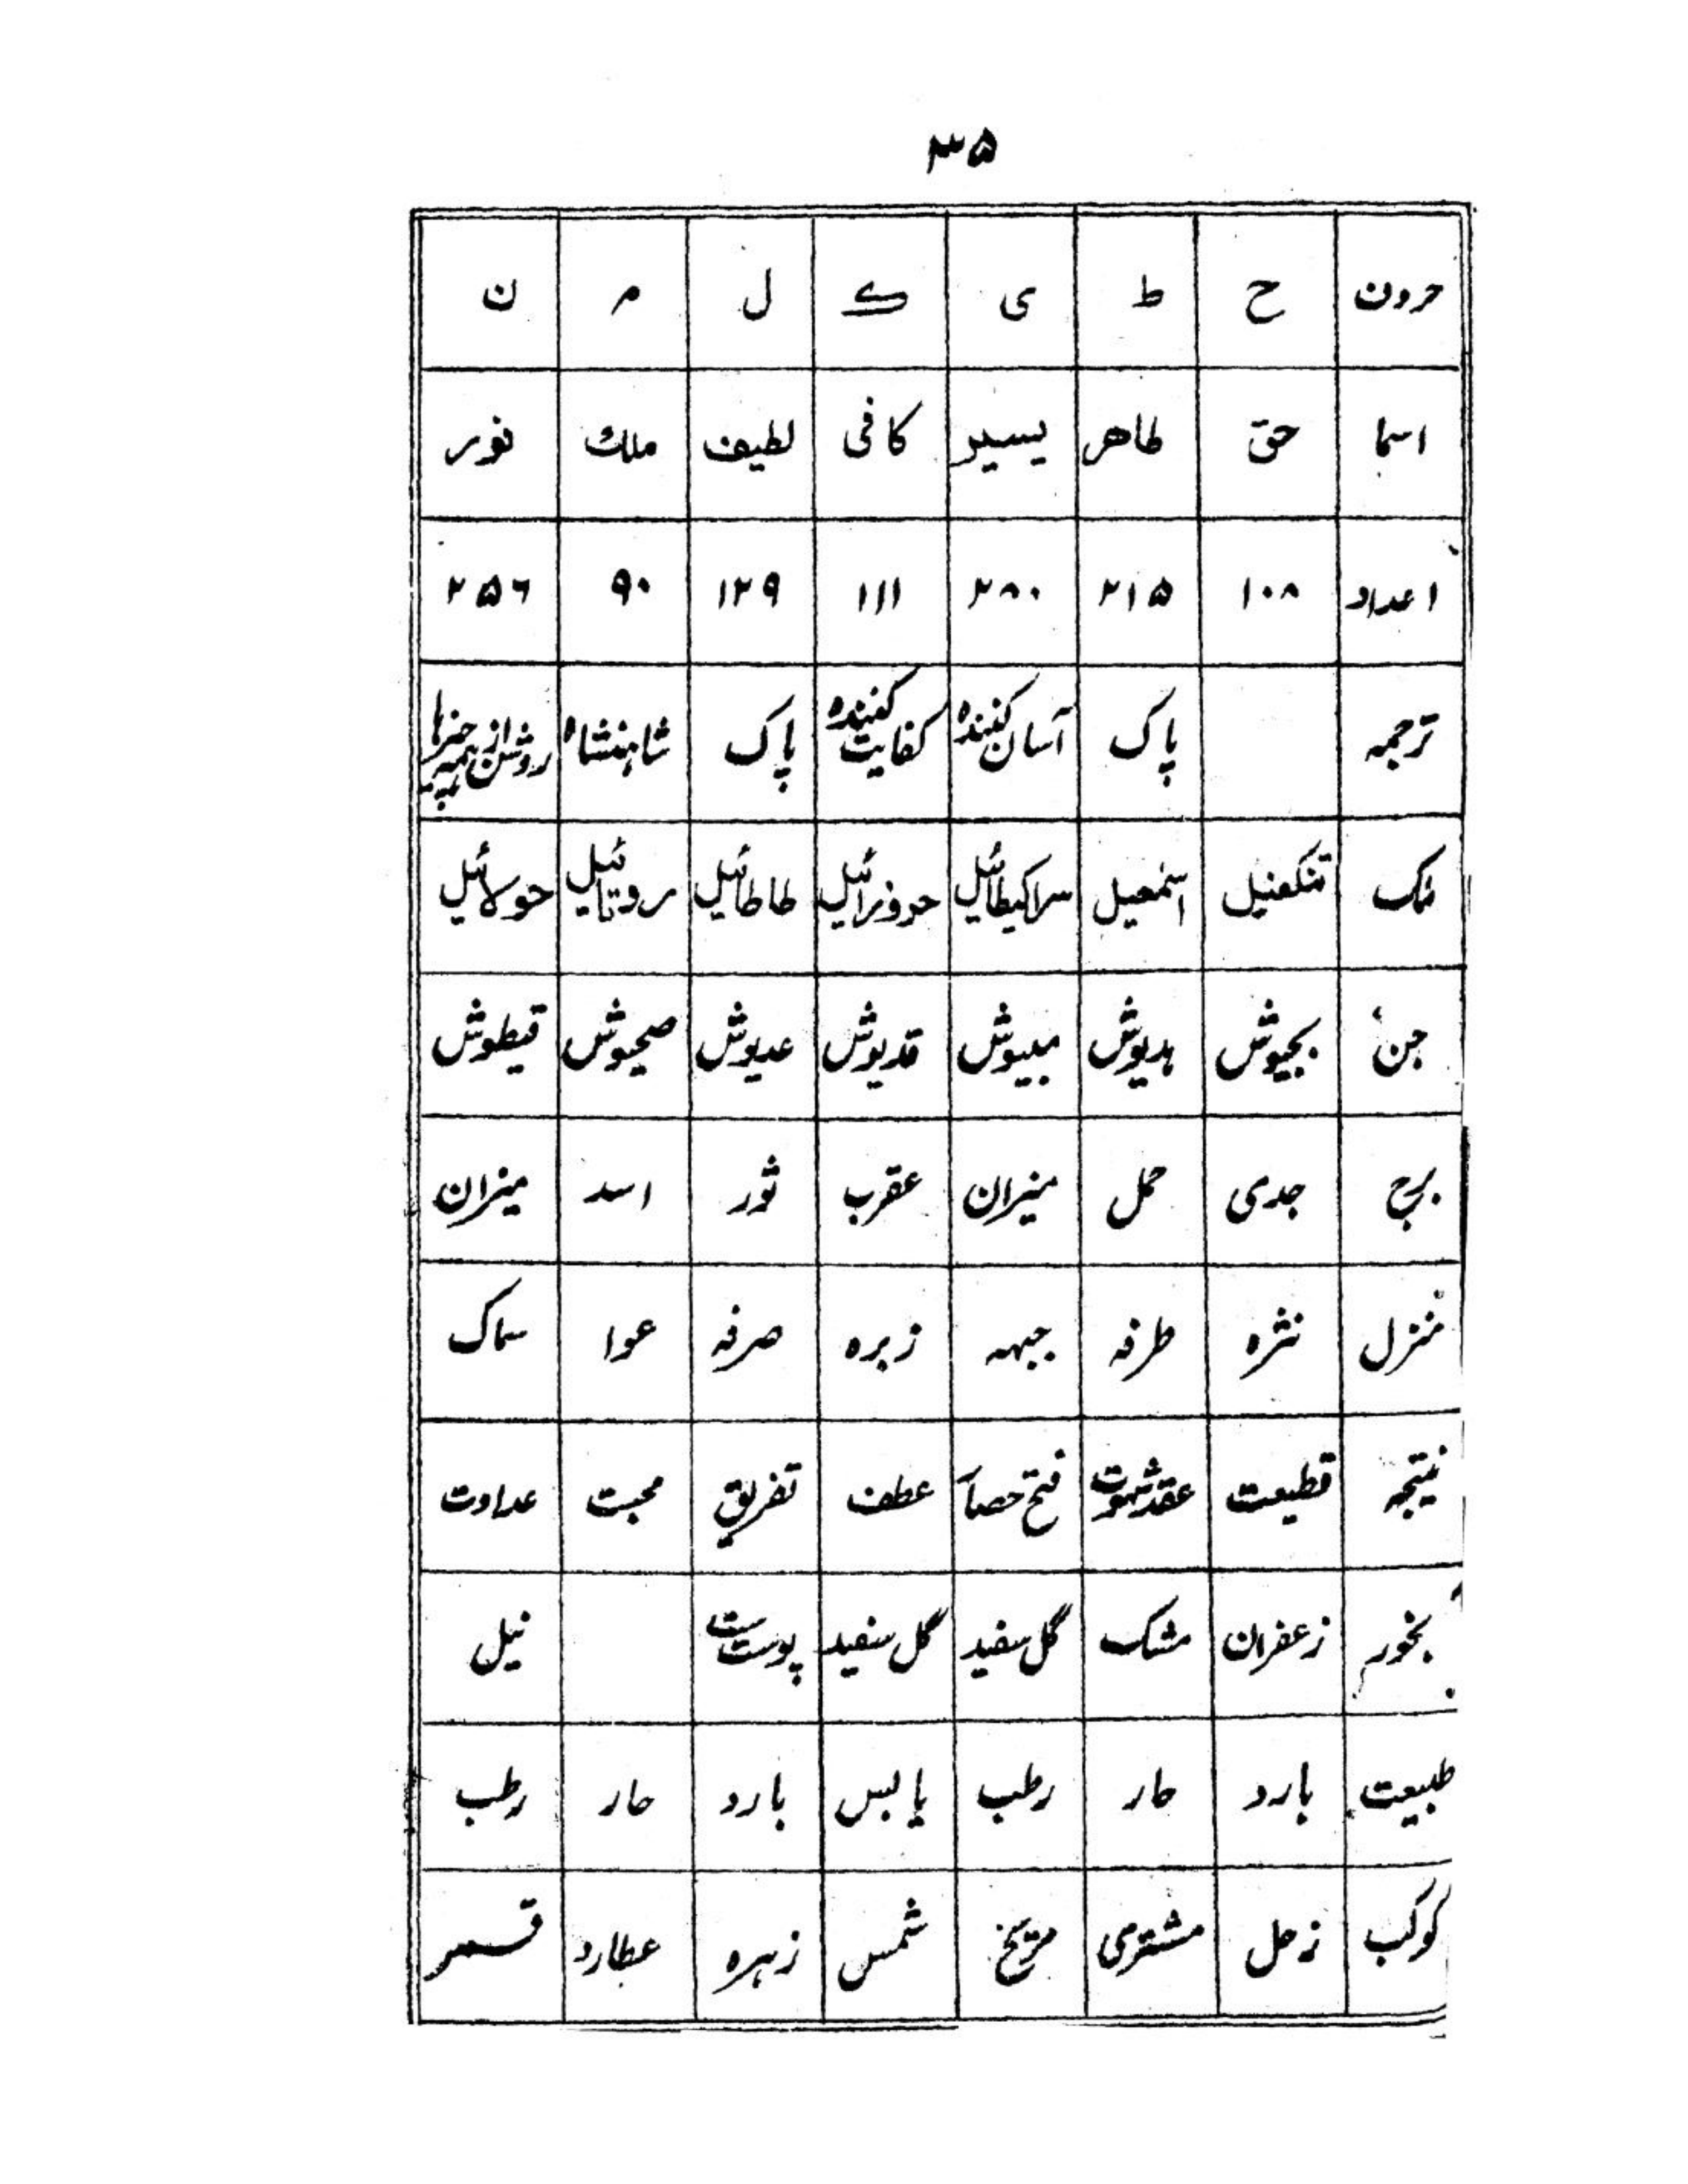 ۳۵
حروف ح ط ی ک ل م ن
اسما حق طاهر یسیر کافی لطیف ملك نور
اعداد ۱۰۸ ۲۱۵ ۲۸۰ ۱۱۱ ۱۲۹ ۹۰ ۲۵۶
ترجمہ پاک آسان کنندہ کفایت کنندہ پاک شاہنشاہ روشن از ہمہ چیزہا
ملک تنکفئیل اسمعیل سراکیطائیل حروزائیل طاطائیل روتائیل حولائیل
جن بجیوش بدیوش مبیوش قدیوش عدیوش صحیوش قیطوش
برج جدی حمل میزان عقرب ثور اسد میزان
منزل نثرہ طرفہ جبہہ زبرہ صرفہ عوا سماک
نتیجہ قطیعت عقد شہوت فتح حصار عطف تفریق محبت عداوت
بخور زعفران مشک گل سفید گل سفید پوست نیل
طبیعت بارد حار رطب یابس بارد حار رطب
کوکب زحل مشتری مریخ شمس زہرہ عطارد قمر